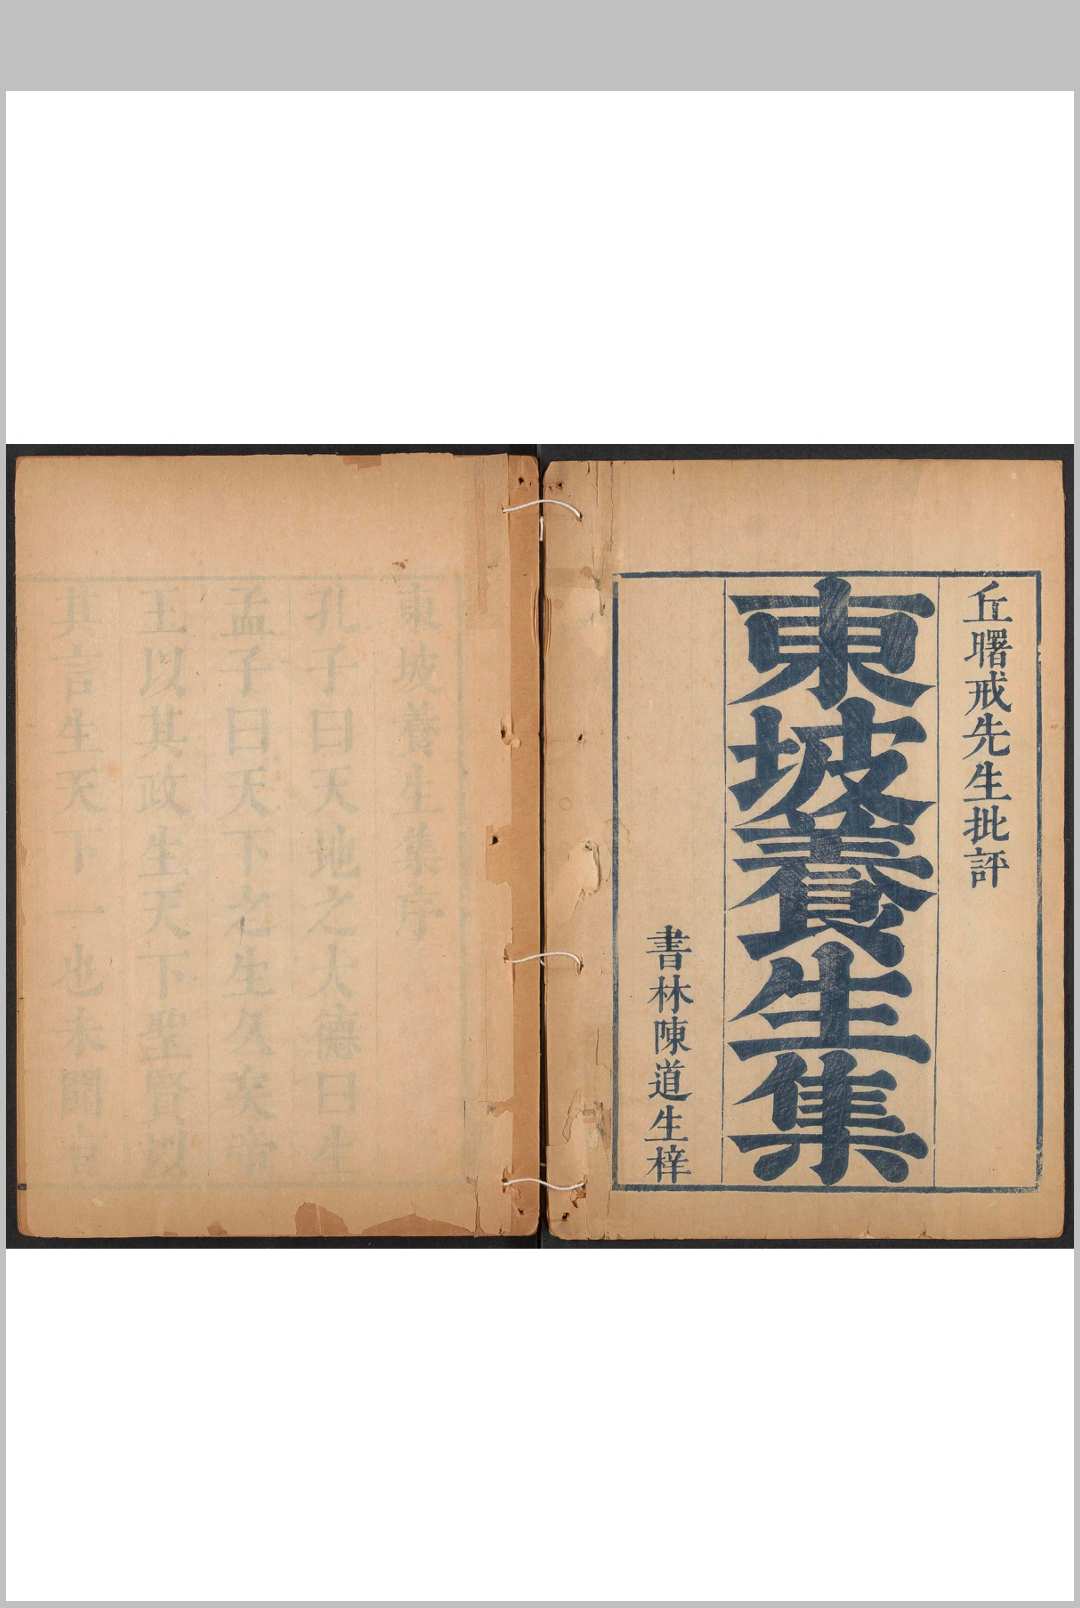 丘曙戒先生批評
東坡養生集
書林陳道生梓
東坡養生集序
孔子曰天地之大德曰生
孟子曰天下之生久矣帝
王以其政生天下聖賢以
其言生天下一也未聞